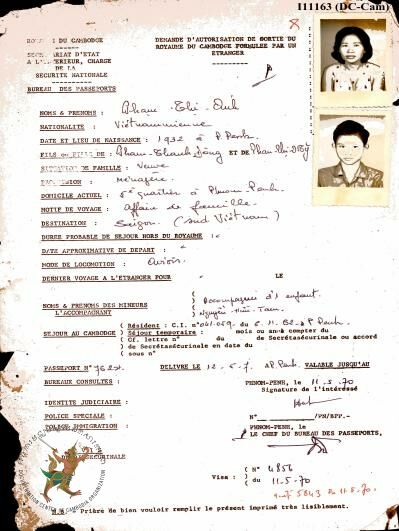 I11163 (DC-Cam)
DU CAMBODGE
SECRETARIAT D'ETAT
A L'INTERIEUR, CHARGE
DE LA
SECURITE NATIONALE
BUREAU DES PASSEPORTS
DEMANDE D'AUTORISATION DE SORTIE DU
ROYAUME DU CAMBODGE FORMULEE PAR UN
ETRANGER
NOMS & PRENOMS : Pham - Thi -
NATIONALITE : Vietnamienne
DATE ET LIEU DE NAISSANCE : 1932 à P. Penh
FILS ou FILLE DE : Pham-Thanh ET DE
SITUATION DE FAMILLE : Veuve
PROFESSION : ménagère
DOMICILE ACTUEL : quartier à Phnom Penh
MOTIF DE VOYAGE : Affaire de famille
DESTINATION : Saigon (Sud Vietnam)
DUREE PROBABLE DE SEJOUR HORS DU ROYAUME :
DATE APPROXIMATIVE DE DEPART :
MODE DE LOCOMOTION : Avion
DERNIER VOYAGE A L'ETRANGER POUR LE
NOMS & PRENOMS DES MINEURS
L'ACCOMPAGNANT
) Accompagnée d'1 enfant
) Nguyên - Tam
SEJOUR AU CAMBODGE
( Résident : C.I. n° du 6.11.62 à P. Penh
( Séjour temporaire : mois ou an à compter du
( Cf. lettre n° du de Secrétasécurinale ou accord
( de Secrétasécurinale en date du
( sous n°
PASSEPORT N° DELIVRE LE 12.5.7 à P. Penh VALABLE JUSQU'AU
BUREAUX CONSULTES :
PHNOM-PENH, le 11.5.70
Signature de l'intéressé
IDENTITE JUDICIAIRE :
POLICE SPECIALE :
POLICE IMMIGRATION :
N° /PS/BPP.-
PHNOM-PENH, le
LE CHEF DU BUREAU DES PASSEPORTS,
Visa :
( N° 4856
( du 11.5.70
5843 du 11.5.70.
Prière de bien vouloir remplir le présent imprimé très lisiblement.
DOCUMENTATION CENTER OF CAMBODIA ORGANIZATION